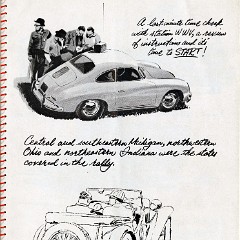 A last-minute time check
with station WWV, a review
of instructions and it's
time to START!
Central and southeastern Michigan, northwestern
Ohio and northeastern Indiana were the states
covered in the rally.